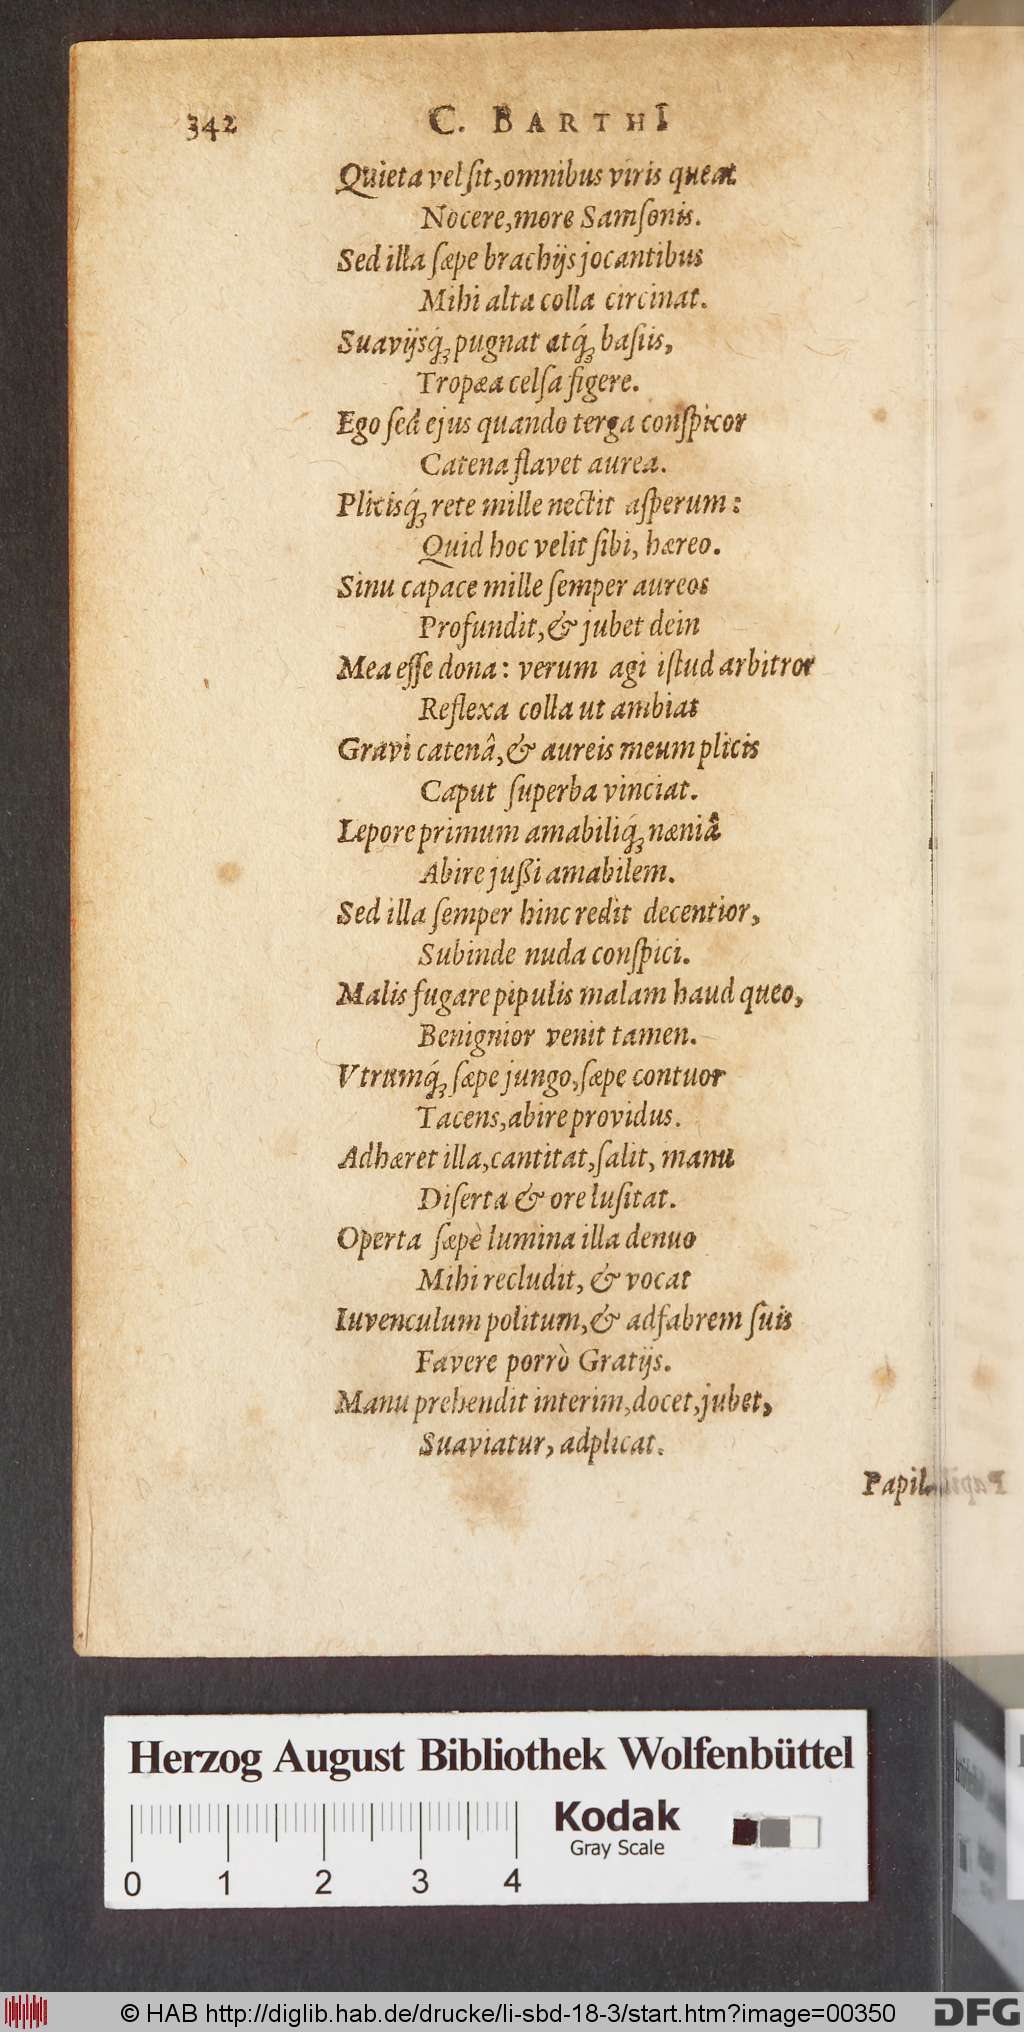 342 C. BARTHI
Quieta vel ſit, omnibus viris queat
Nocere, more Samſonis.
Sed illa ſæpe brachijs jocantibus
Mihi alta colla circinat.
Suavijsq́ꝫ pugnat atq́ꝫ baſiis,
Tropæa celſa figere.
Ego ſed ejus quando terga conſpicor
Catena flavet aurea.
Plicisq́ꝫ rete mille nectit aſperum:
Quid hoc velit ſibi, hæreo.
Sinu capace mille ſemper aureos
Profundit, & jubet dein
Mea eſſe dona: verum agi iſtud arbitror
Reflexa colla ut ambiat
Gravi catenâ, & aureis meum plicis
Caput ſuperba vinciat.
Lepore primum amabiliq́ꝫ næniâ
Abire jußi amabilem.
Sed illa ſemper hinc redit decentior,
Subinde nuda conſpici.
Malis fugare pipulis malam haud queo,
Benignior venit tamen.
Vtrumq́ꝫ ſæpe jungo, ſæpe contuor
Tacens, abire providus.
Adhæret illa, cantitat, ſalit, manu
Diſerta & ore luſitat.
Operta ſæpè lumina illa denuo
Mihi recludit, & vocat
Iuvenculum politum, & adfabrem ſuis
Favere porrò Gratijs.
Manu prehendit interim, docet, jubet,
Suaviatur, adplicat.
Papil-
Herzog August Bibliothek Wolfenbüttel
Kodak
Gray Scale
0 1 2 3 4
© HAB http://diglib.hab.de/drucke/li-sbd-18-3/start.htm?image=00350
DFG